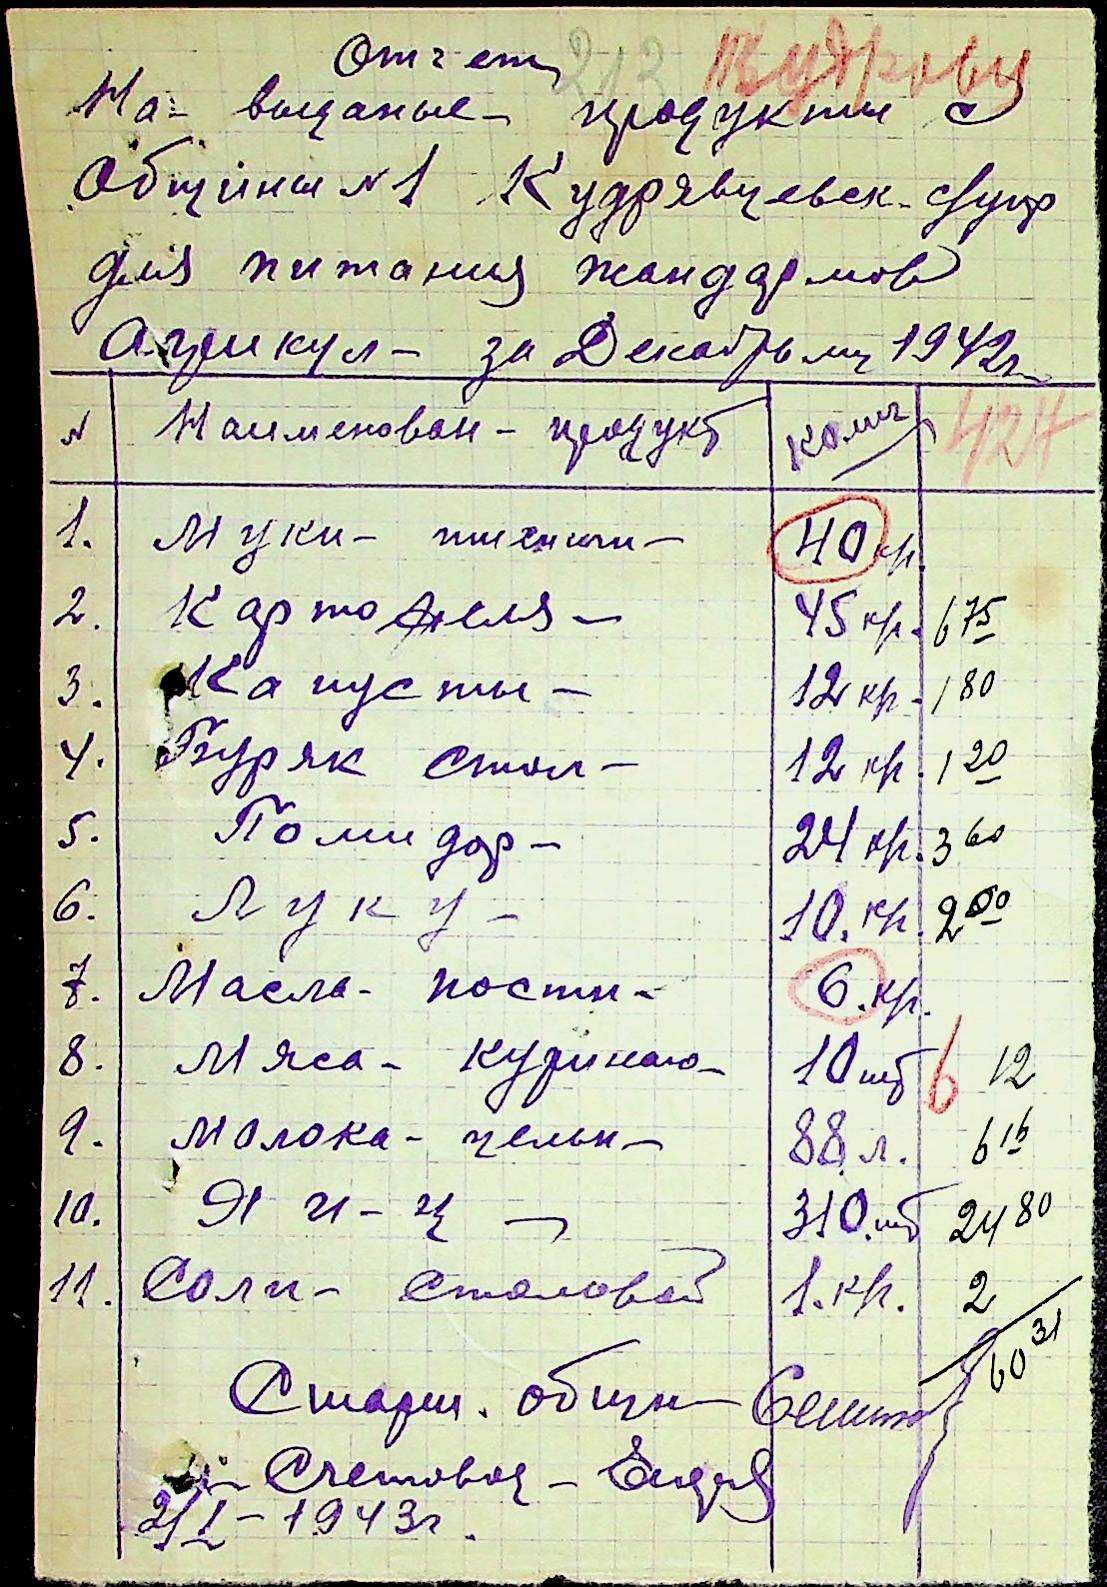 Отчет 213
На- выданые- продукты с
Общины №1 Кудрявцевск-
для питания жандармов
за Декабрь м-ц 1942г.
№ Наименован- продукт колич 424
1. Муки- пшенич- 40 кр.
2. Картофеля- 45 кр. 6 75
3. Капусты- 12 кр. 1 80
4. Буряк стол- 12 кр. 1 20
5. Помидор- 24 кр. 3 60
6. Луку- 10. кр. 2 00
7. Масла- постн- 6. кр.
8. Мяса- куринаю- 10 шт 6 12
9. Молока- цельн- 88 л. 6 16
10. Яи-ц- 310. шт 24 80
11. Соли- столовой 1. кр. 2
60 31
Старш. общин-
Счетовод-
2/I-1943г.